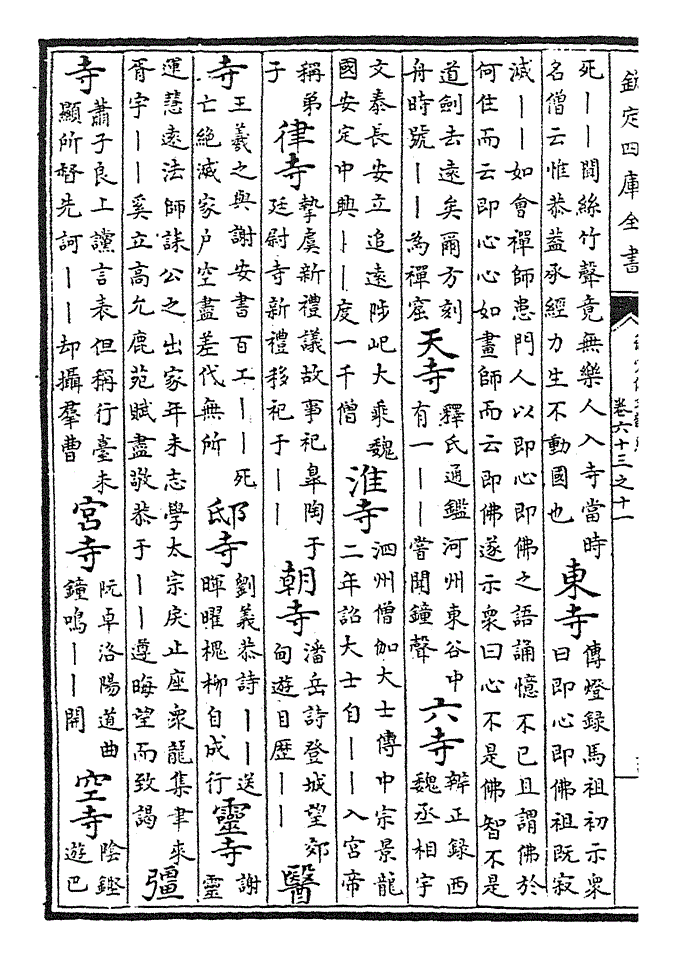 欽定四庫全書
卷六十三之十一
死丨丨聞絲竹聲竟無樂人入寺當時
名僧云惟恭葢承經力生不動國也
東寺
傳燈録馬祖初示衆
曰即心即佛祖既寂
滅丨丨如會禪師患門人以即心即佛之語誦憶不已且謂佛於
何住而云即心心如畫師而云即佛遂示衆曰心不是佛智不是
道劍去遠矣爾方刻
舟時號丨丨為禪窟
天寺
釋氏通鑑河州東谷中
有一丨丨嘗聞鐘聲
六寺
辨正録西
魏丞相宇
文泰長安立追遠陟屺大乘魏
國安定中興丨丨度一千僧
淮寺
泗州僧伽大士傳中宗景龍
二年詔大士自丨丨入宮帝
稱弟
子
律寺
摯虞新禮議故事祀臯陶于
廷尉寺新禮移祀于丨丨
朝寺
潘岳詩登城望郊
甸遊目歴丨丨
醫
寺
王羲之與謝安書百工丨丨死
亡絶滅家户空盡差代無所
邸寺
劉義恭詩丨丨送
暉曜槐柳自成行
靈寺
謝
靈
運慧遠法師誄公之出家年未志學太宗戾止座衆龍集聿來
胥宇丨丨奚立高允鹿苑賦盡敬恭于丨丨遵晦望而致謁
彊
寺
蕭子良上讜言表但稱行臺未
顯所督先訶丨丨却攝羣曹
宫寺
阮卓洛陽道曲
鐘鳴丨丨開
空寺
陰鏗
遊巴